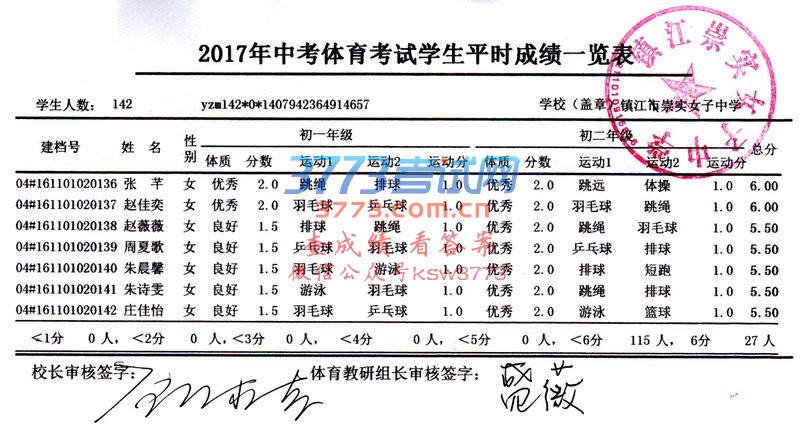 2017年中考体育考试学生平时成绩一览表
学生人数： 142 yzm142*0*1407942364914657 学校（盖章）镇江市崇实女子中学
建档号 姓 名 性别 初一年级 初二年级 总分
体质 分数 运动1 运动2 运动分 体质 分数 运动1 运动2 运动分
04#161101020136 张 芊 女 优秀 2.0 跳绳 排球 1.0 优秀 2.0 跳远 体操 1.0 6.00
04#161101020137 赵佳奕 女 优秀 2.0 羽毛球 乒乓球 1.0 优秀 2.0 羽毛球 跳绳 1.0 6.00
04#161101020138 赵薇薇 女 良好 1.5 排球 跳绳 1.0 优秀 2.0 跳绳 羽毛球 1.0 5.50
04#161101020139 周夏歌 女 良好 1.5 乒乓球 羽毛球 1.0 优秀 2.0 乒乓球 排球 1.0 5.50
04#161101020140 朱晨馨 女 良好 1.5 羽毛球 游泳 1.0 优秀 2.0 排球 短跑 1.0 5.50
04#161101020141 朱诗雯 女 良好 1.5 游泳 羽毛球 1.0 优秀 2.0 跳绳 排球 1.0 5.50
04#161101020142 庄佳怡 女 良好 1.5 羽毛球 乒乓球 1.0 优秀 2.0 游泳 篮球 1.0 5.50
<1分 0人, <2分 0人, <3分 0人, <4分 0人, <5分 0人, <6分 115人, 6分 27人
校长审核签字： 体育教研组长审核签字：
镇江崇实女子中学
3773考试网
3773.com.cn
查成绩看答案
微信公众号ksw3773